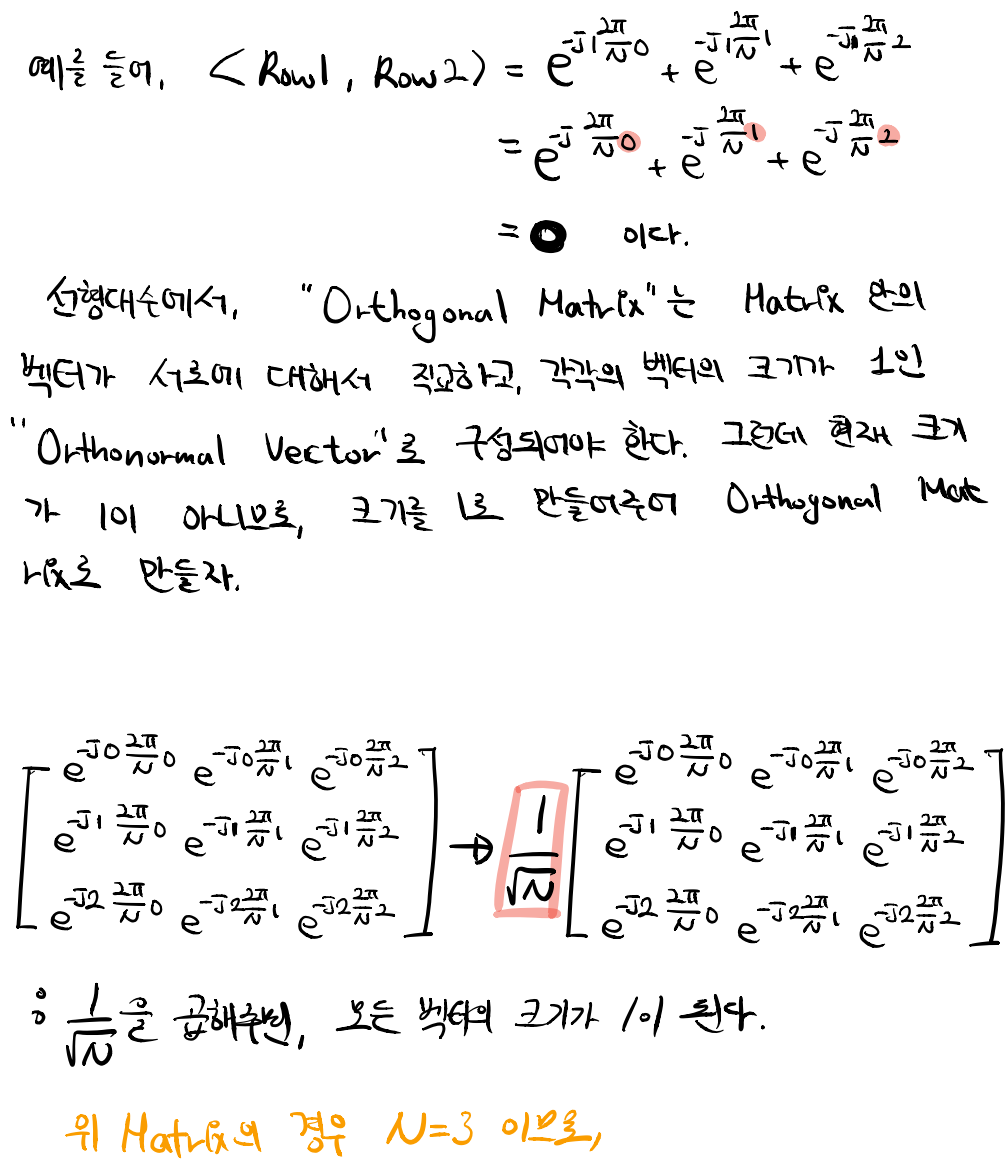 예를 들어, <Row1, Row2> = e^{-J1\frac{2π}{N}0} + e^{-J1\frac{2π}{N}1} + e^{-J1\frac{2π}{N}2}
= e^{-J\frac{2π}{N}0} + e^{-J\frac{2π}{N}1} + e^{-J\frac{2π}{N}2}
= 0 이다.
선형대수에서, "Orthogonal Matrix"는 Matrix 안의
벡터가 서로에 대해서 직교하고, 각각의 벡터의 크기가 1인
"Orthonormal Vector"로 구성되어야 한다. 그런데 현재 크기
가 1이 아니므로, 크기를 1로 만들어주어 Orthogonal Mat
rix로 만들자.
[e^{-J0\frac{2π}{N}0} e^{-J0\frac{2π}{N}1} e^{-J0\frac{2π}{N}2}
e^{-J1\frac{2π}{N}0} e^{-J1\frac{2π}{N}1} e^{-J1\frac{2π}{N}2}
e^{-J2\frac{2π}{N}0} e^{-J2\frac{2π}{N}1} e^{-J2\frac{2π}{N}2}]
→ \frac{1}{√N}
[e^{-J0\frac{2π}{N}0} e^{-J0\frac{2π}{N}1} e^{-J0\frac{2π}{N}2}
e^{-J1\frac{2π}{N}0} e^{-J1\frac{2π}{N}1} e^{-J1\frac{2π}{N}2}
e^{-J2\frac{2π}{N}0} e^{-J2\frac{2π}{N}1} e^{-J2\frac{2π}{N}2}]
: \frac{1}{√N}을 곱해주면, 모든 벡터의 크기가 1이 된다.
위 Matrix의 경우 N=3 이므로,